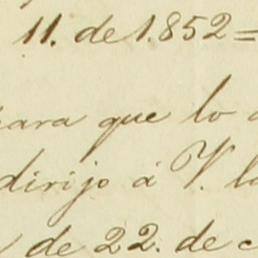 11. de 1.852=
para que lo
dirijo á V. la
de 22. de